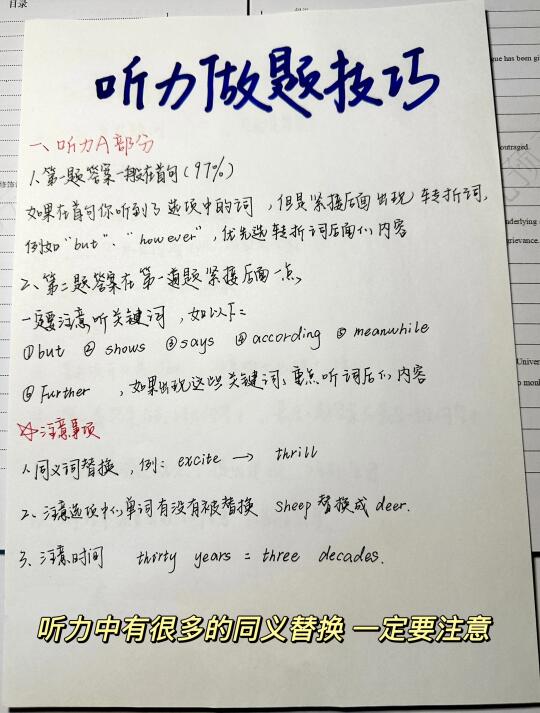 目录
听力做题技巧
一、听力A部分
1、第一题答案一般在首句(97%)
如果在首句你听到了选项中的词，但是紧接后面出现转折词，
例如"but"、"however"，优先选转折词后面们内容
2、第二题答案在第一道题紧接后面一点，
一定要注意听关键词，如以下：
①but ② shows ③says ④according ⑤ meanwhile
⑥Further ，如果出现这些关键词，重点听词后们内容
☆注意事项
1、同义词替换，例：excite → thrill
2、注意选项中们单词有没有被替换 sheep 替换成 deer.
3、注意时间 thirty years = three decades.
听力中有很多的同义替换 一定要注意
gue has been gi
outraged.
nderlying
grievance.
Univer
to monl